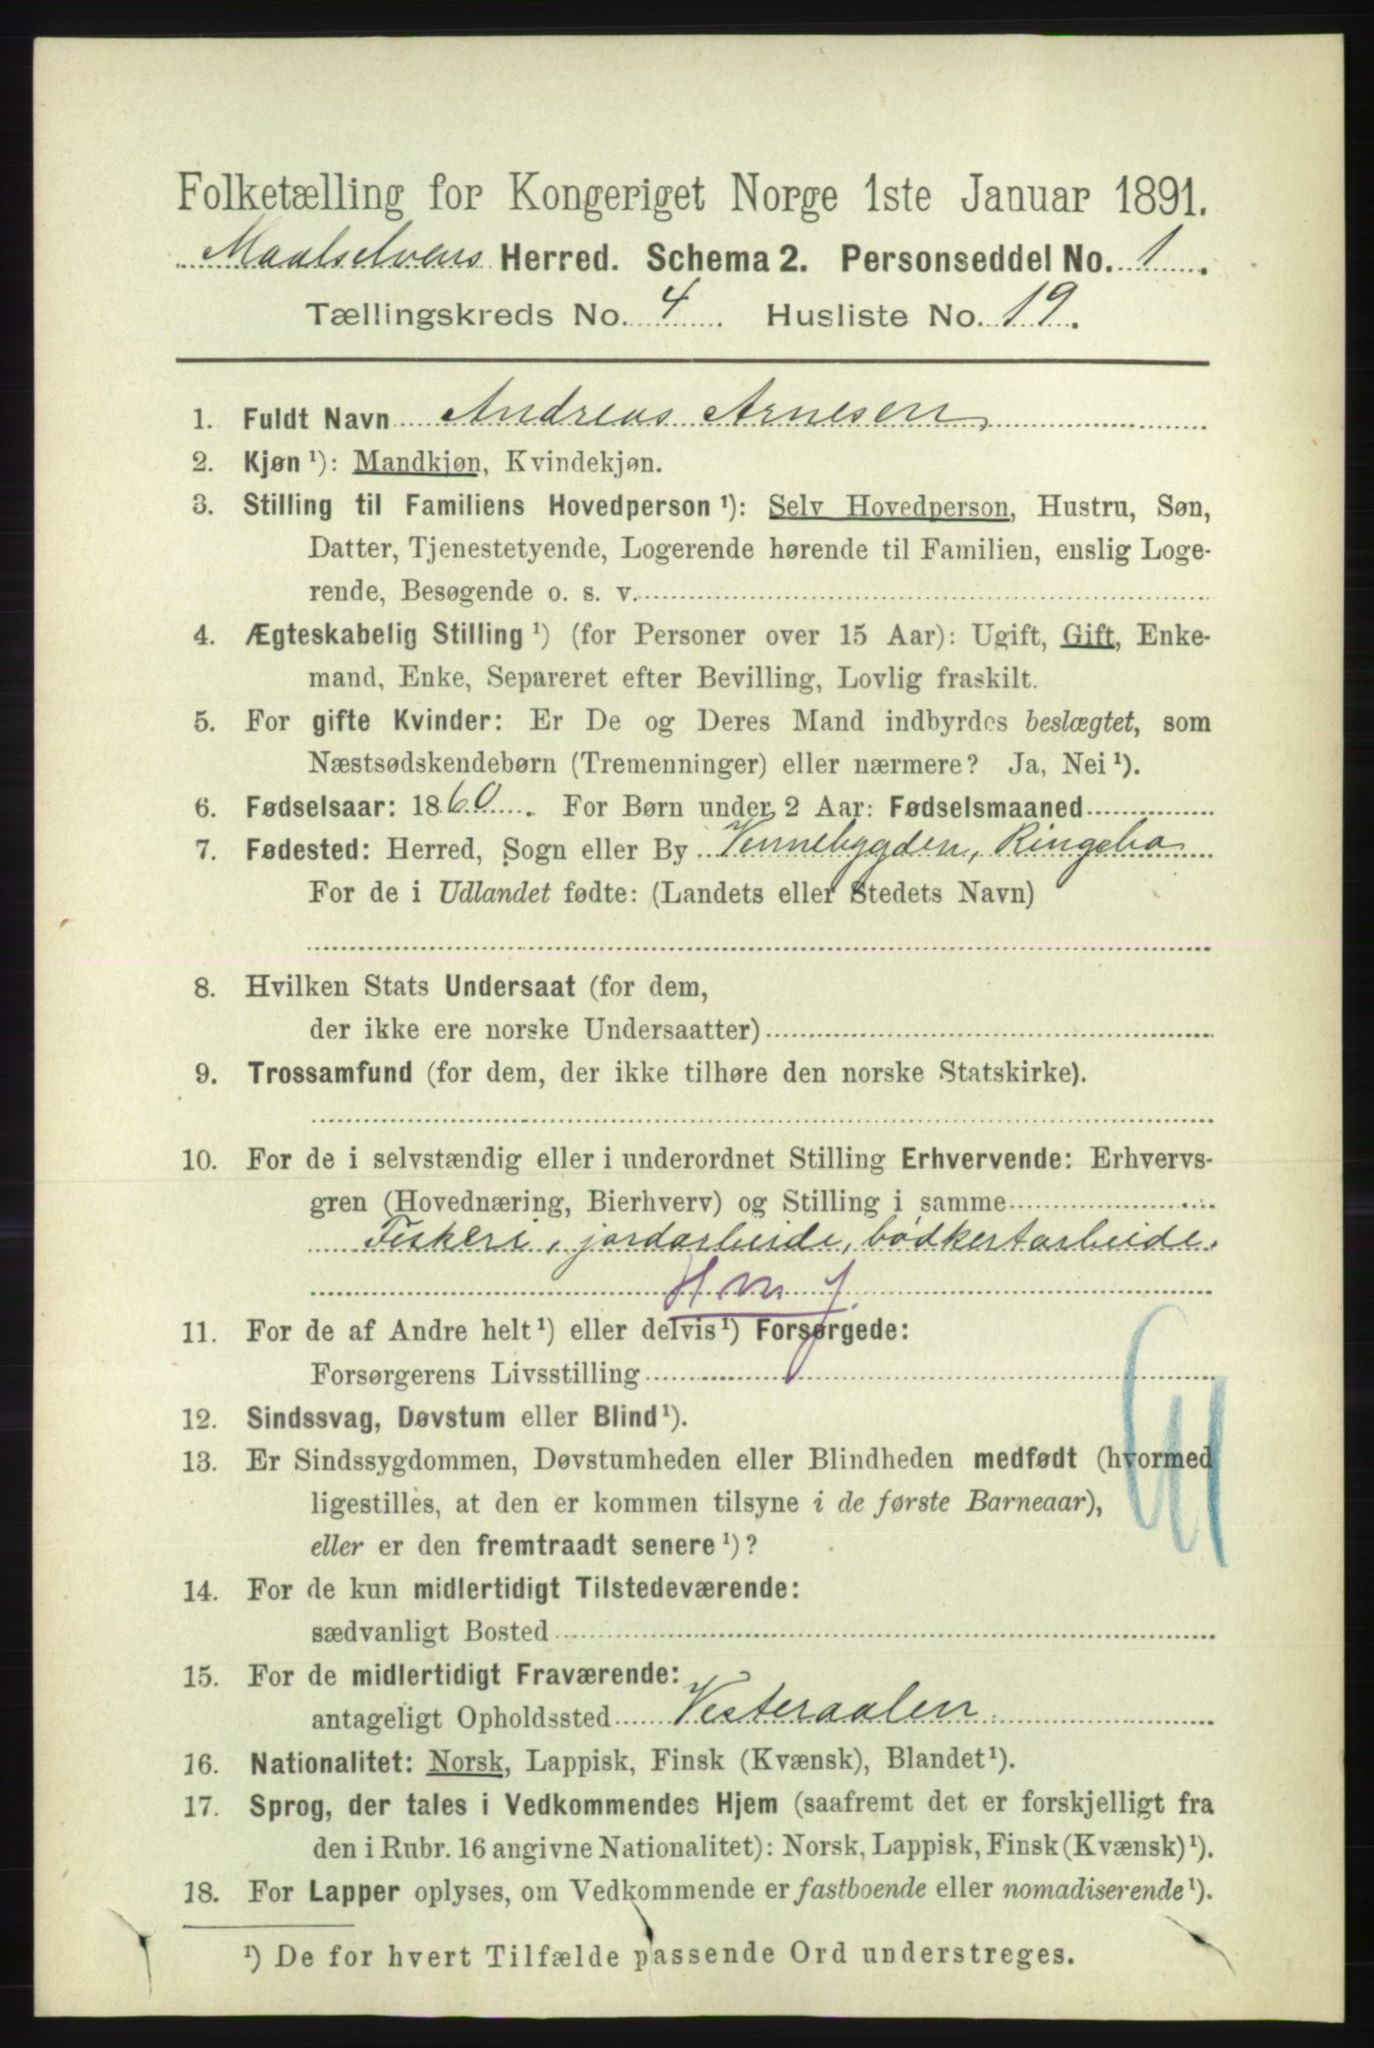 Folketælling for Kongeriget Norge 1ste Januar 1891.
Maalselvens Herred. Schema 2. Personseddel No. 1.
Tællingskreds No. 4 Husliste No. 19.
1. Fuldt Navn Andreas Arnesen,
2. Kjøn ¹): Mandkjøn, Kvindekjøn.
3. Stilling til Familiens Hovedperson ¹): Selv Hovedperson, Hustru, Søn,
Datter, Tjenestetyende, Logerende hørende til Familien, enslig Loge-
rende, Besøgende o. s. v.
4. Ægteskabelig Stilling ¹) (for Personer over 15 Aar): Ugift, Gift, Enke-
mand, Enke, Separeret efter Bevilling, Lovlig fraskilt.
5. For gifte Kvinder: Er De og Deres Mand indbyrdes beslægtet, som
Næstsødskendebørn (Tremenninger) eller nærmere? Ja, Nei ¹).
6. Fødselsaar: 1860. For Børn under 2 Aar: Fødselsmaaned
7. Fødested: Herred, Sogn eller By Vennebygden, Ringebo
For de i Udlandet fødte: (Landets eller Stedets Navn)
8. Hvilken Stats Undersaat (for dem,
der ikke ere norske Undersaatter)
9. Trossamfund (for dem, der ikke tilhøre den norske Statskirke).
10. For de i selvstændig eller i underordnet Stilling Erhvervende: Erhvervs-
gren (Hovednæring, Bierhverv) og Stilling i samme
Fiskeri, jordarbeide, bødkertarbeide.
11. For de af Andre helt ¹) eller delvis ¹) Forsørgede:
Forsørgerens Livsstilling
12. Sindssvag, Døvstum eller Blind ¹).
13. Er Sindssygdommen, Døvstumheden eller Blindheden medfødt (hvormed
ligestilles, at den er kommen tilsyne i de første Barneaar),
eller er den fremtraadt senere ¹)?
14. For de kun midlertidigt Tilstedeværende:
sædvanligt Bosted
15. For de midlertidigt Fraværende:
antageligt Opholdssted Vesteraalen
16. Nationalitet: Norsk, Lappisk, Finsk (Kvænsk), Blandet ¹).
17. Sprog, der tales i Vedkommendes Hjem (saafremt det er forskjelligt fra
den i Rubr. 16 angivne Nationalitet): Norsk, Lappisk, Finsk (Kvænsk) ¹).
18. For Lapper oplyses, om Vedkommende er fastboende eller nomadiserende ¹).
¹) De for hvert Tilfælde passende Ord understreges.